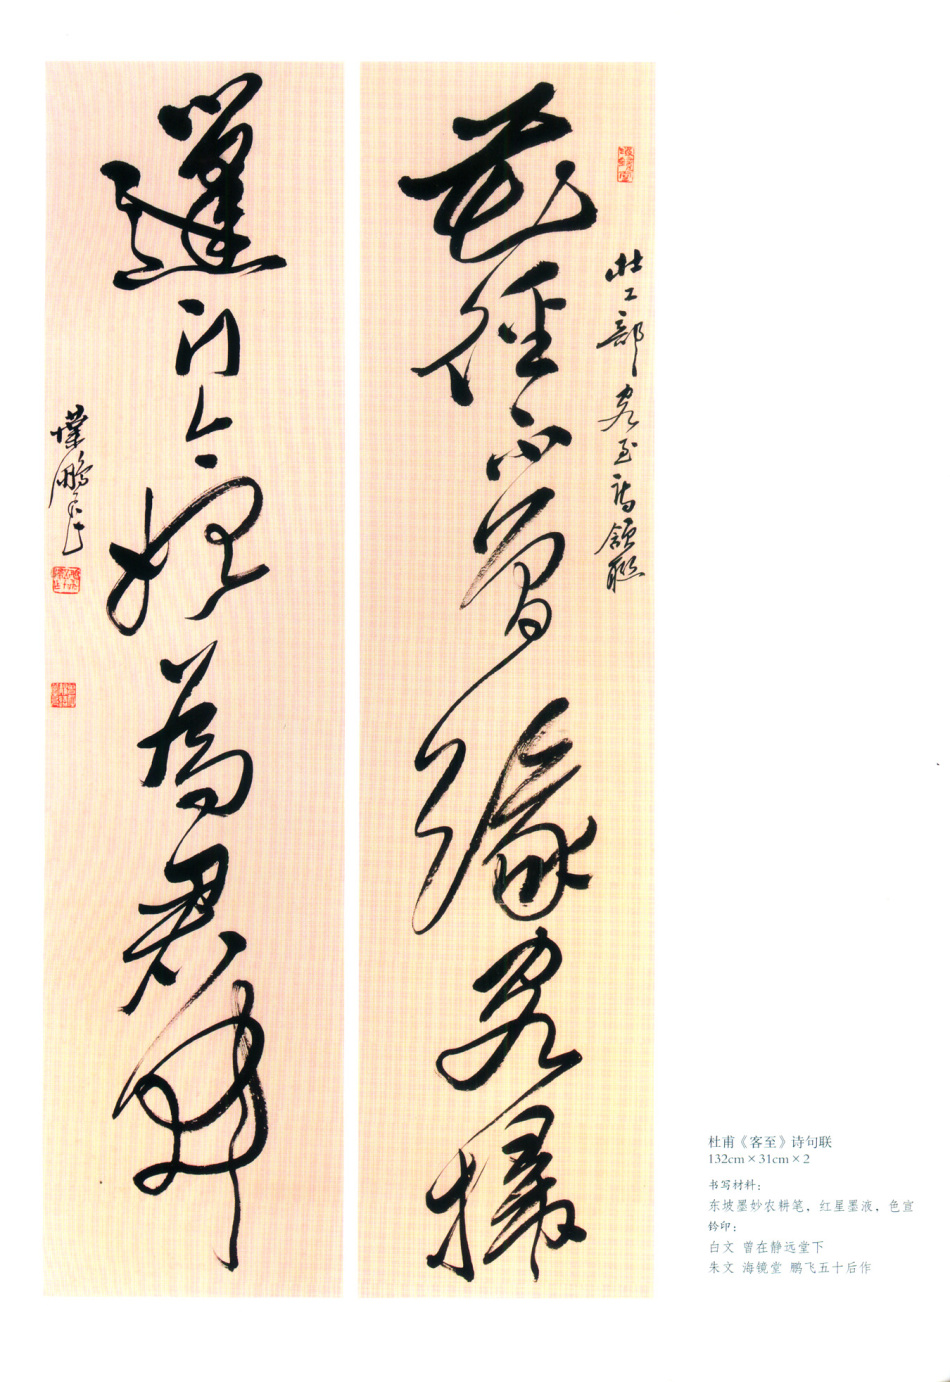 杜工部客至詩頷聯
花徑不曾緣客掃
蓬門今始為君開
杜甫《客至》诗句联
132cm×31cm×2
书写材料：
东坡墨妙农耕笔，红星墨液，色宣
钤印：
白文 曾在静远堂下
朱文 海镜堂 鹏飞五十后作